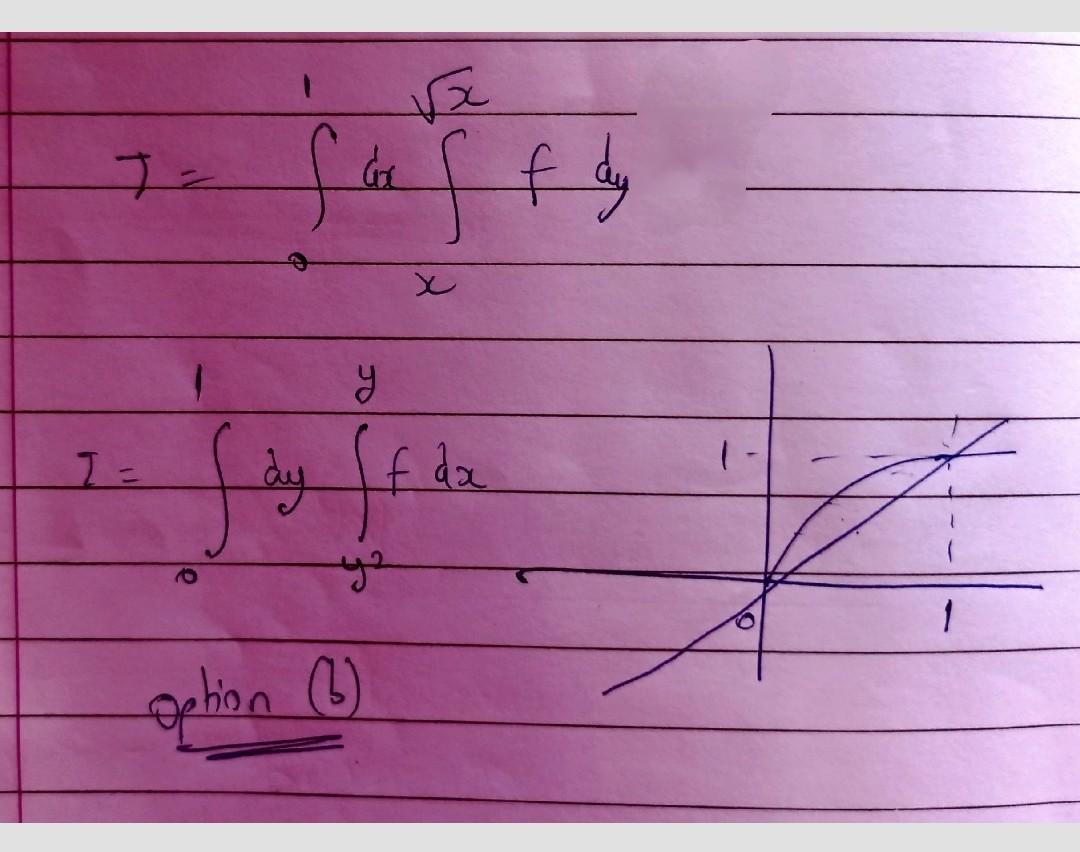 I = ∫₀¹ dx ∫ₓ^√x f dy
I = ∫₀¹ dy ∫_y²^y f dx
1
0
1
option (b)